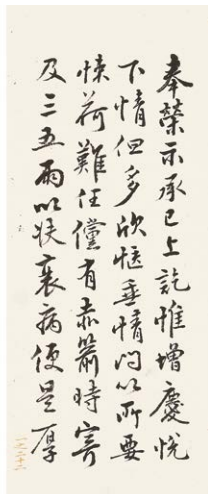 奉榮示承已上訖惟增慶悅
下情但多欣愜垂情問以所要
悚荷難任儻有赤箭時寄
及三五兩以扶衰病便是厚